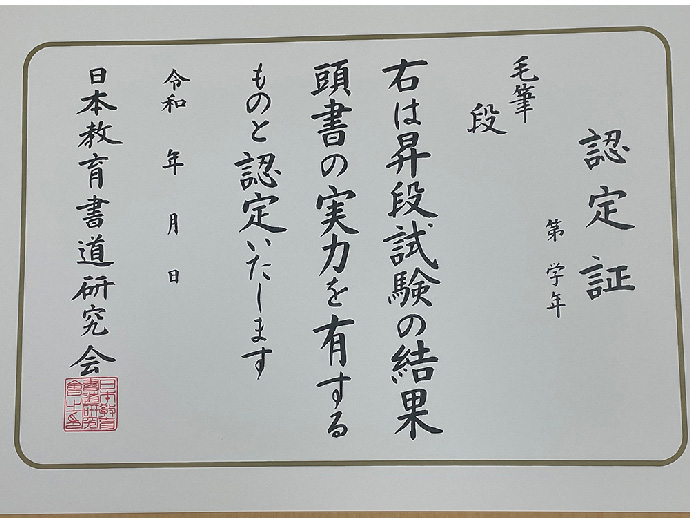 認定証
第　学年
毛筆
段
右は昇段試験の結果
頭書の実力を有する
ものと認定いたします
令和　年　月　日
日本教育書道研究会